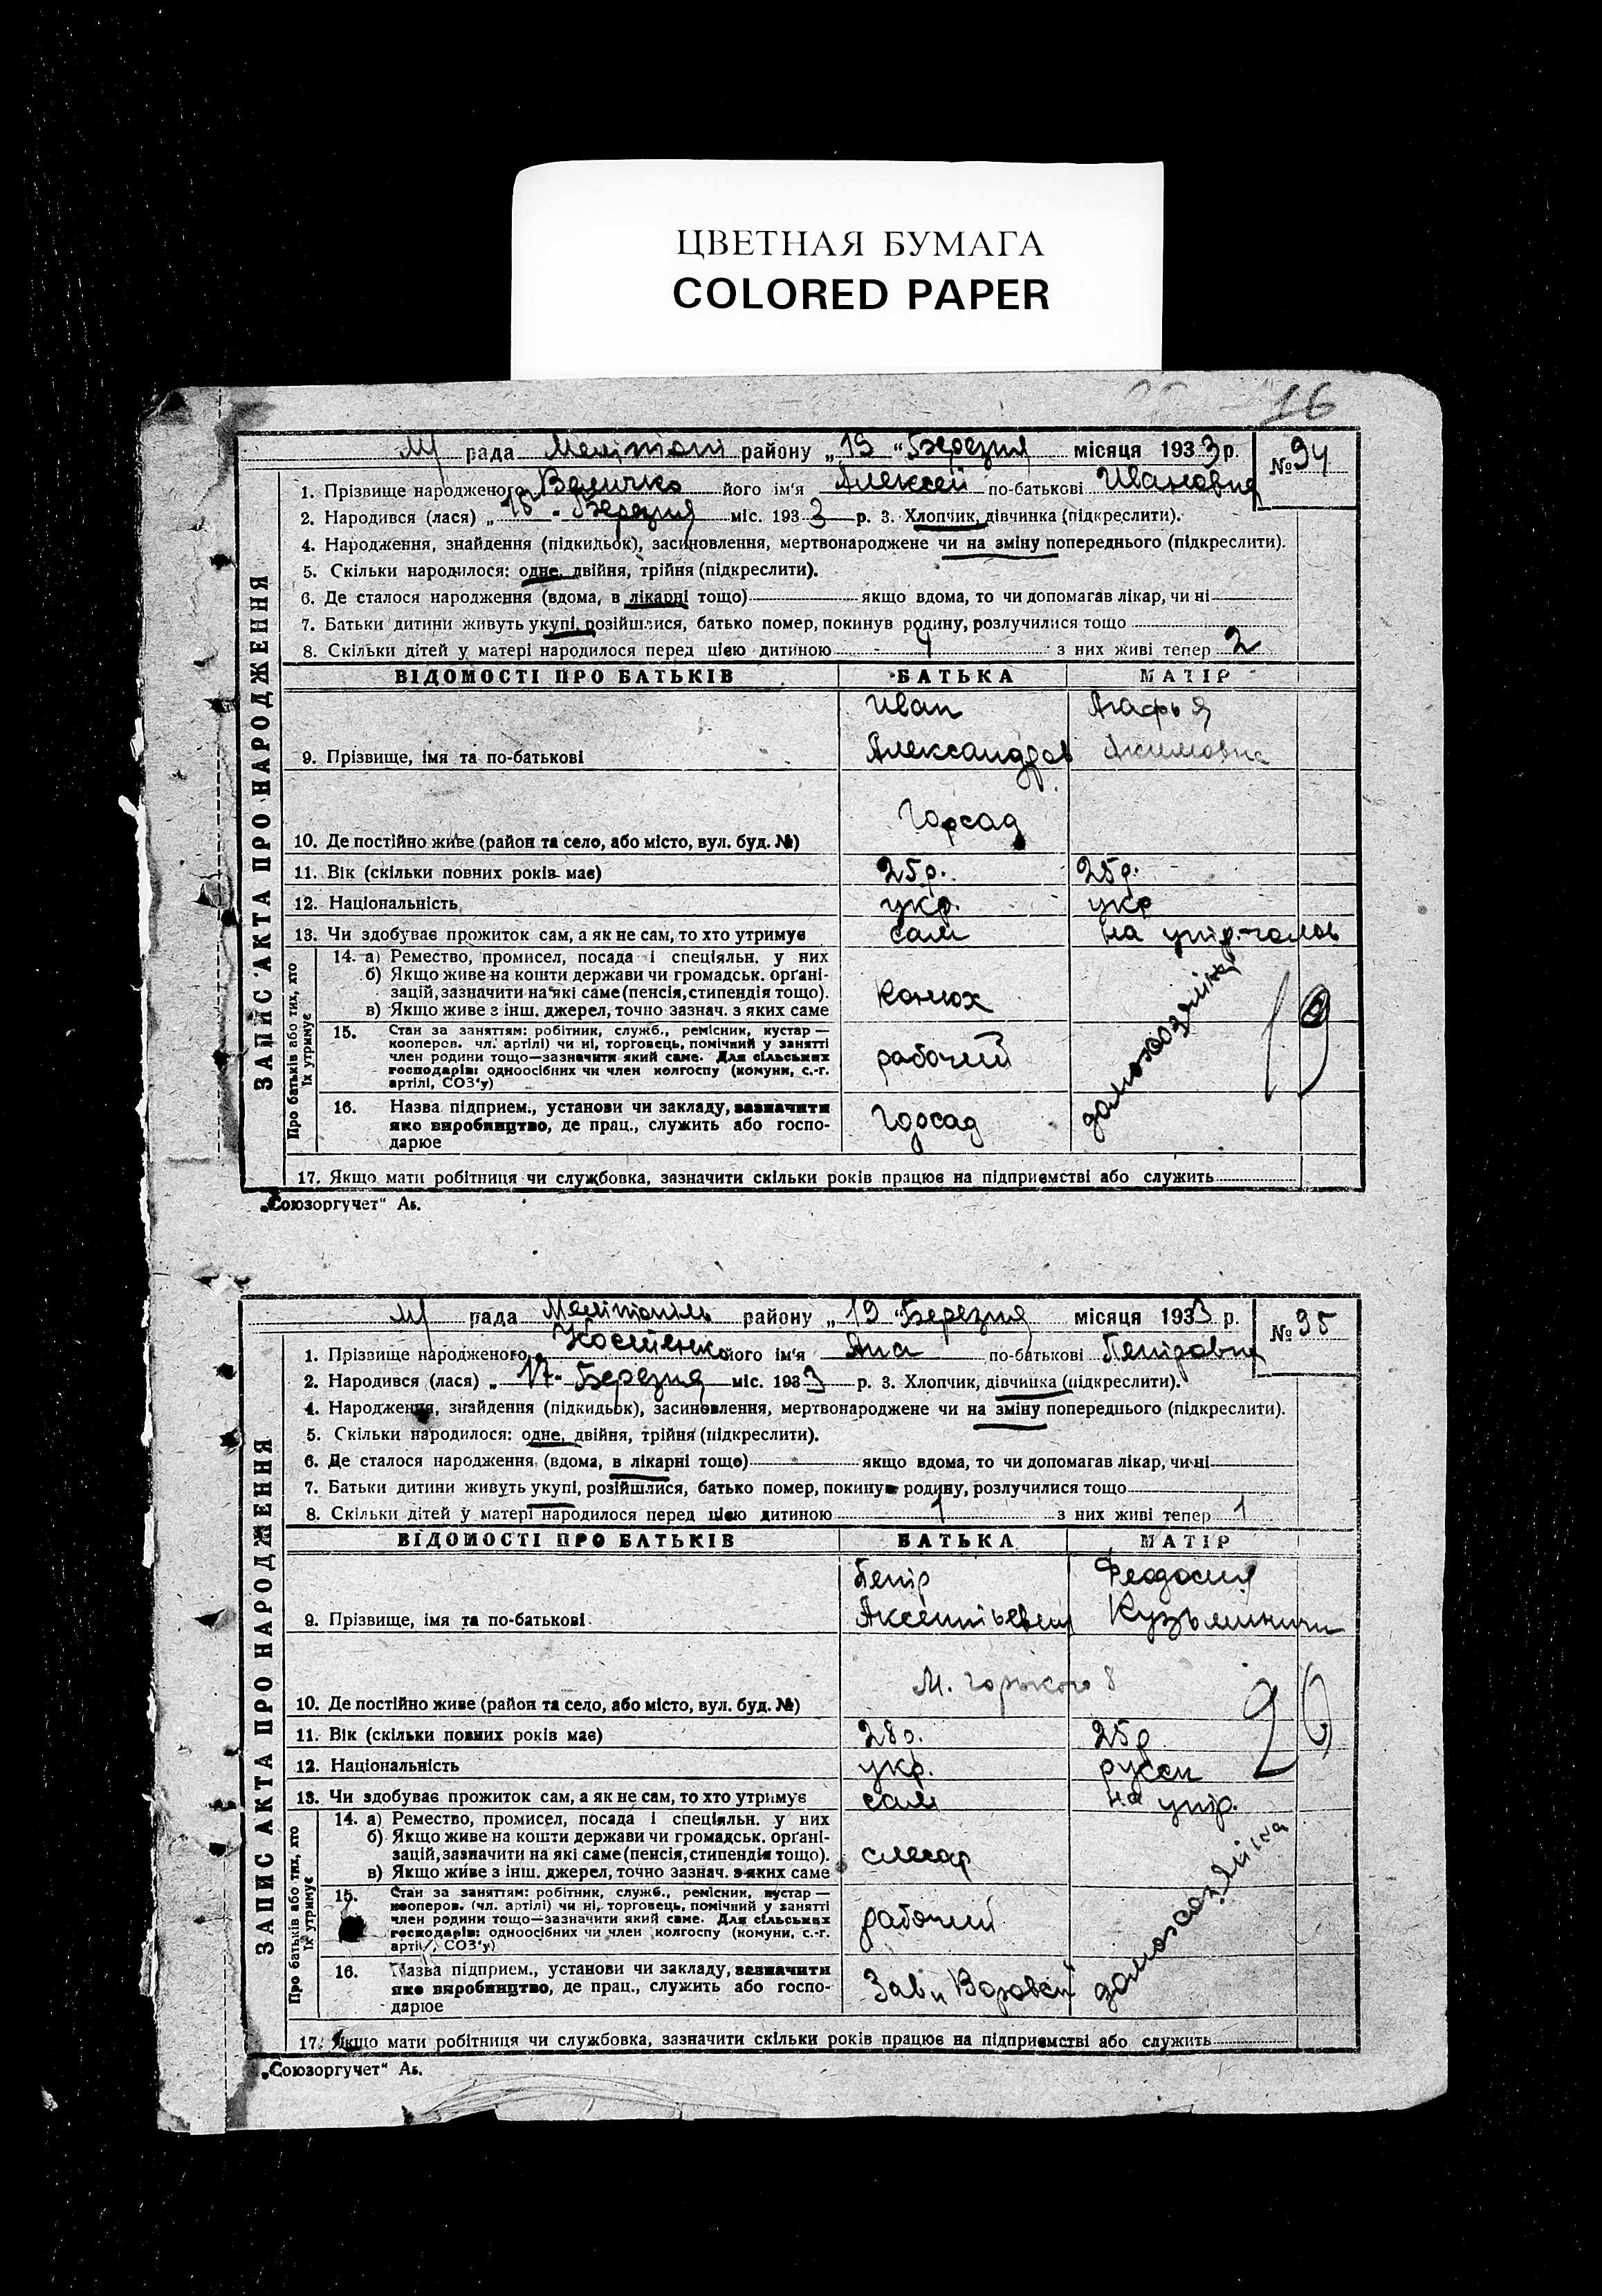 ЦВЕТНАЯ БУМАГА
COLORED PAPER
16
М/ рада Мелітопіл району „19“ Березня місяця 1933 р. № 94
1. Прізвище народженого Величко його ім'я Алексей по-батькові Ивановия
2. Народився (лася) „18“ Березня міс. 1933 р. 3. Хлопчик, дівчинка (підкреслити).
4. Народження, знайдення (підкидьок), засиновлення, мертвонароджене чи на зміну попереднього (підкреслити).
5. Скільки народилося: одне, двійня, трійня (підкреслити).
6. Де сталося народження (вдома, в лікарні тощо) якщо вдома, то чи допомагав лікар, чи ні
7. Батьки дитини живуть укупі, розійшлися, батько помер, покинув родину, розлучилися тощо
8. Скільки дітей у матері народилося перед цією дитиною 4 з них живі тепер 2
ЗАПИС АКТА ПРО НАРОДЖЕННЯ
ВІДОМОСТІ ПРО БАТЬКІВ БАТЬКА МАТІР
Иван Агафья
9. Прізвище, імя та по-батькові Александров Акимовна
Горсад
10. Де постійно живе (район та село, або місто, вул. буд. №)
11. Вік (скільки повних років має) 25 р. 25 р.
12. Національність укр. укр
13. Чи здобуває прожиток сам, а як не сам, то хто утримує сам на утр.
Про батьків або тих, хто їх утримує
14. а) Ремество, промисел, посада і спеціяльн. у них
б) Якщо живе на кошти держави чи громадськ. орґані-
зацій, зазначити на які саме (пенсія, стипендія тощо). конюх
в) Якщо живе з інш. джерел, точно зазнач. з яких саме
15. Стан за заняттям: робітник, служб., ремісник, кустар —
кооперов. чл. артілі) чи ні, торговець, помічний у занятті
член родини тощо—зазначити який саме. Для сільських рабочий
господарів: одноосібних чи член колгоспу (комуни, с.-г.
артілі, СОЗ'у)
домохозяйка
19
16. Назва підприєм., установи чи закладу, зазначити
яко виробництво, де прац., служить або госпо- Горсад
дарює
17. Якщо мати робітниця чи службовка, зазначити скільки років працює на підприємстві або служить
„Союзоргучет“ Аь.
М/ рада Мелітопіль району „19“ Березня місяця 1933 р. № 95
1. Прізвище народженого Костенко його ім'я Ана по-батькові Петровна
2. Народився (лася) „17“ Березня міс. 1933 р. 3. Хлопчик, дівчинка (підкреслити).
4. Народження, знайдення (підкидьок), засиновлення, мертвонароджене чи на зміну попереднього (підкреслити).
5. Скільки народилося: одне, двійня, трійня (підкреслити).
6. Де сталося народження (вдома, в лікарні тощо) якщо вдома, то чи допомагав лікар, чи ні
7. Батьки дитини живуть укупі, розійшлися, батько помер, покинув родину, розлучилися тощо
8. Скільки дітей у матері народилося перед цією дитиною 1 з них живі тепер 1
ЗАПИС АКТА ПРО НАРОДЖЕННЯ
ВІДОМОСТІ ПРО БАТЬКІВ БАТЬКА МАТІР
Петр Феодосия
9. Прізвище, імя та по-батькові
М. Горького 8
10. Де постійно живе (район та село, або місто, вул. буд. №)
11. Вік (скільки повних років має) 28 р. 25 р
12. Національність укр. русск
13. Чи здобуває прожиток сам, а як не сам, то хто утримує сам на утр.
20
Про батьків або тих, хто їх утримує
14. а) Ремество, промисел, посада і спеціяльн. у них
б) Якщо живе на кошти держави чи громадськ. орґані-
зацій, зазначити на які саме (пенсія, стипендія тощо). слесар
в) Якщо живе з інш. джерел, точно зазнач. з яких саме
15. Стан за заняттям: робітник, служб., ремісник, кустар —
кооперов. (чл. артілі) чи ні, торговець, помічний у занятті
член родини тощо—зазначити який саме. Для сільських рабочий
господарів: одноосібних чи член колгоспу (комуни, с.-г.
артілі, СОЗ'у)
домохозяйка
16. Назва підприєм., установи чи закладу, зазначити
яко виробництво, де прац., служить або госпо- Зав
дарює
17. Якщо мати робітниця чи службовка, зазначити скільки років працює на підприємстві або служить
„Союзоргучет“ Аь.